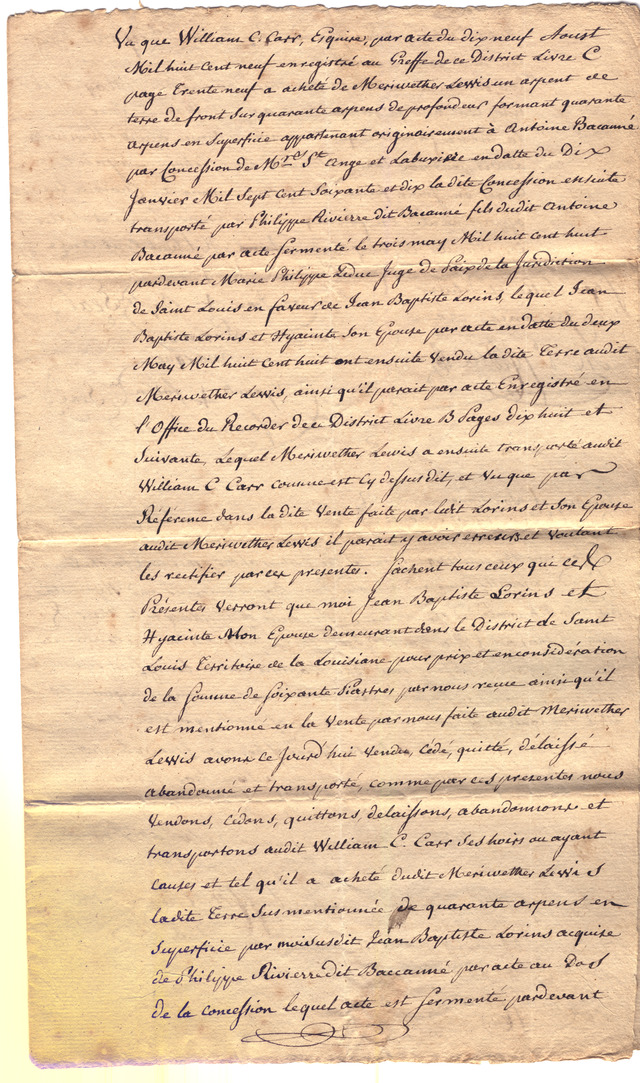 Vu que William C. Carr, Esquire, par acte du dix neuf Aoust
Mil huit Cent neuf enregistré au Greffe de ce District Livre C
page Trente neuf a acheté de Meriwether Lewis un arpent de
terre de front sur quarante arpens de profondeur formant quarante
arpens en Superficie appartenant originairement à Antoine Bacanné
par Concession de Mrs St Ange et Labuxière en datte du Dix
Janvier Mil Sept cent Soixante et dix la dite Concession ensuite
transporté par Philippe Rivierre dit Bacanné fils dudit Antoine
Bacanné par acte Sermenté le trois may Mil huit cent huit
pardevant Marie Philippe Leduc Juge de Paix de la Juridiction
de Saint Louis en faveur de Jean Baptiste Lorins, lequel Jean
Baptiste Lorins et Hyacinte Son Epouse par acte en datte du deux
May Mil huit Cent huit ont ensuite Vendu la dite Terre audit
Meriwether Lewis, ainsi qu'il parait par acte Enregistré en
l'Office du Recorder de ce District Livre B Pages dix huit et
Suivante, Lequel Meriwether Lewis a ensuite transporté audit
William C Carr comme est Cy dessus dit, et Vu que par
Référence dans la dite Vente faite par ledit Lorins et Son Epouse
audit Meriwether Lewis il parait y avoir erreurs et Voulant
les rectifier par ces presentes. Sachent tous ceux qui ces
Présentes Verront que moi Jean Baptiste Lorins et
Hyacinte Mon Epouse demeurant dans le District de Saint
Louis Territoire de la Louisiane pour prix et en considération
de la Somme de Soixante Piastres par nous reçue ainsi qu'il
est mentionné en la Vente par nous faite audit Meriwether
Lewis avons ce Jourd'hui Vendu, Cédé, quitté, délaissé
abandonné et transporté, comme par ces presentes nous
Vendons, Cédons, quittons, delaissons, abandonnons et
transportons audit William C. Carr Ses hoirs ou ayant
causes et tel qu'il a acheté dudit Meriwether Lewis
la dite Terre Susmentionnée de quarante arpens en
Superficie par moi susdit Jean Baptiste Lorins acquise
de Philippe Rivierre dit Baccanné par acte au Doss
de la concession lequel acte est Sermenté pardevant